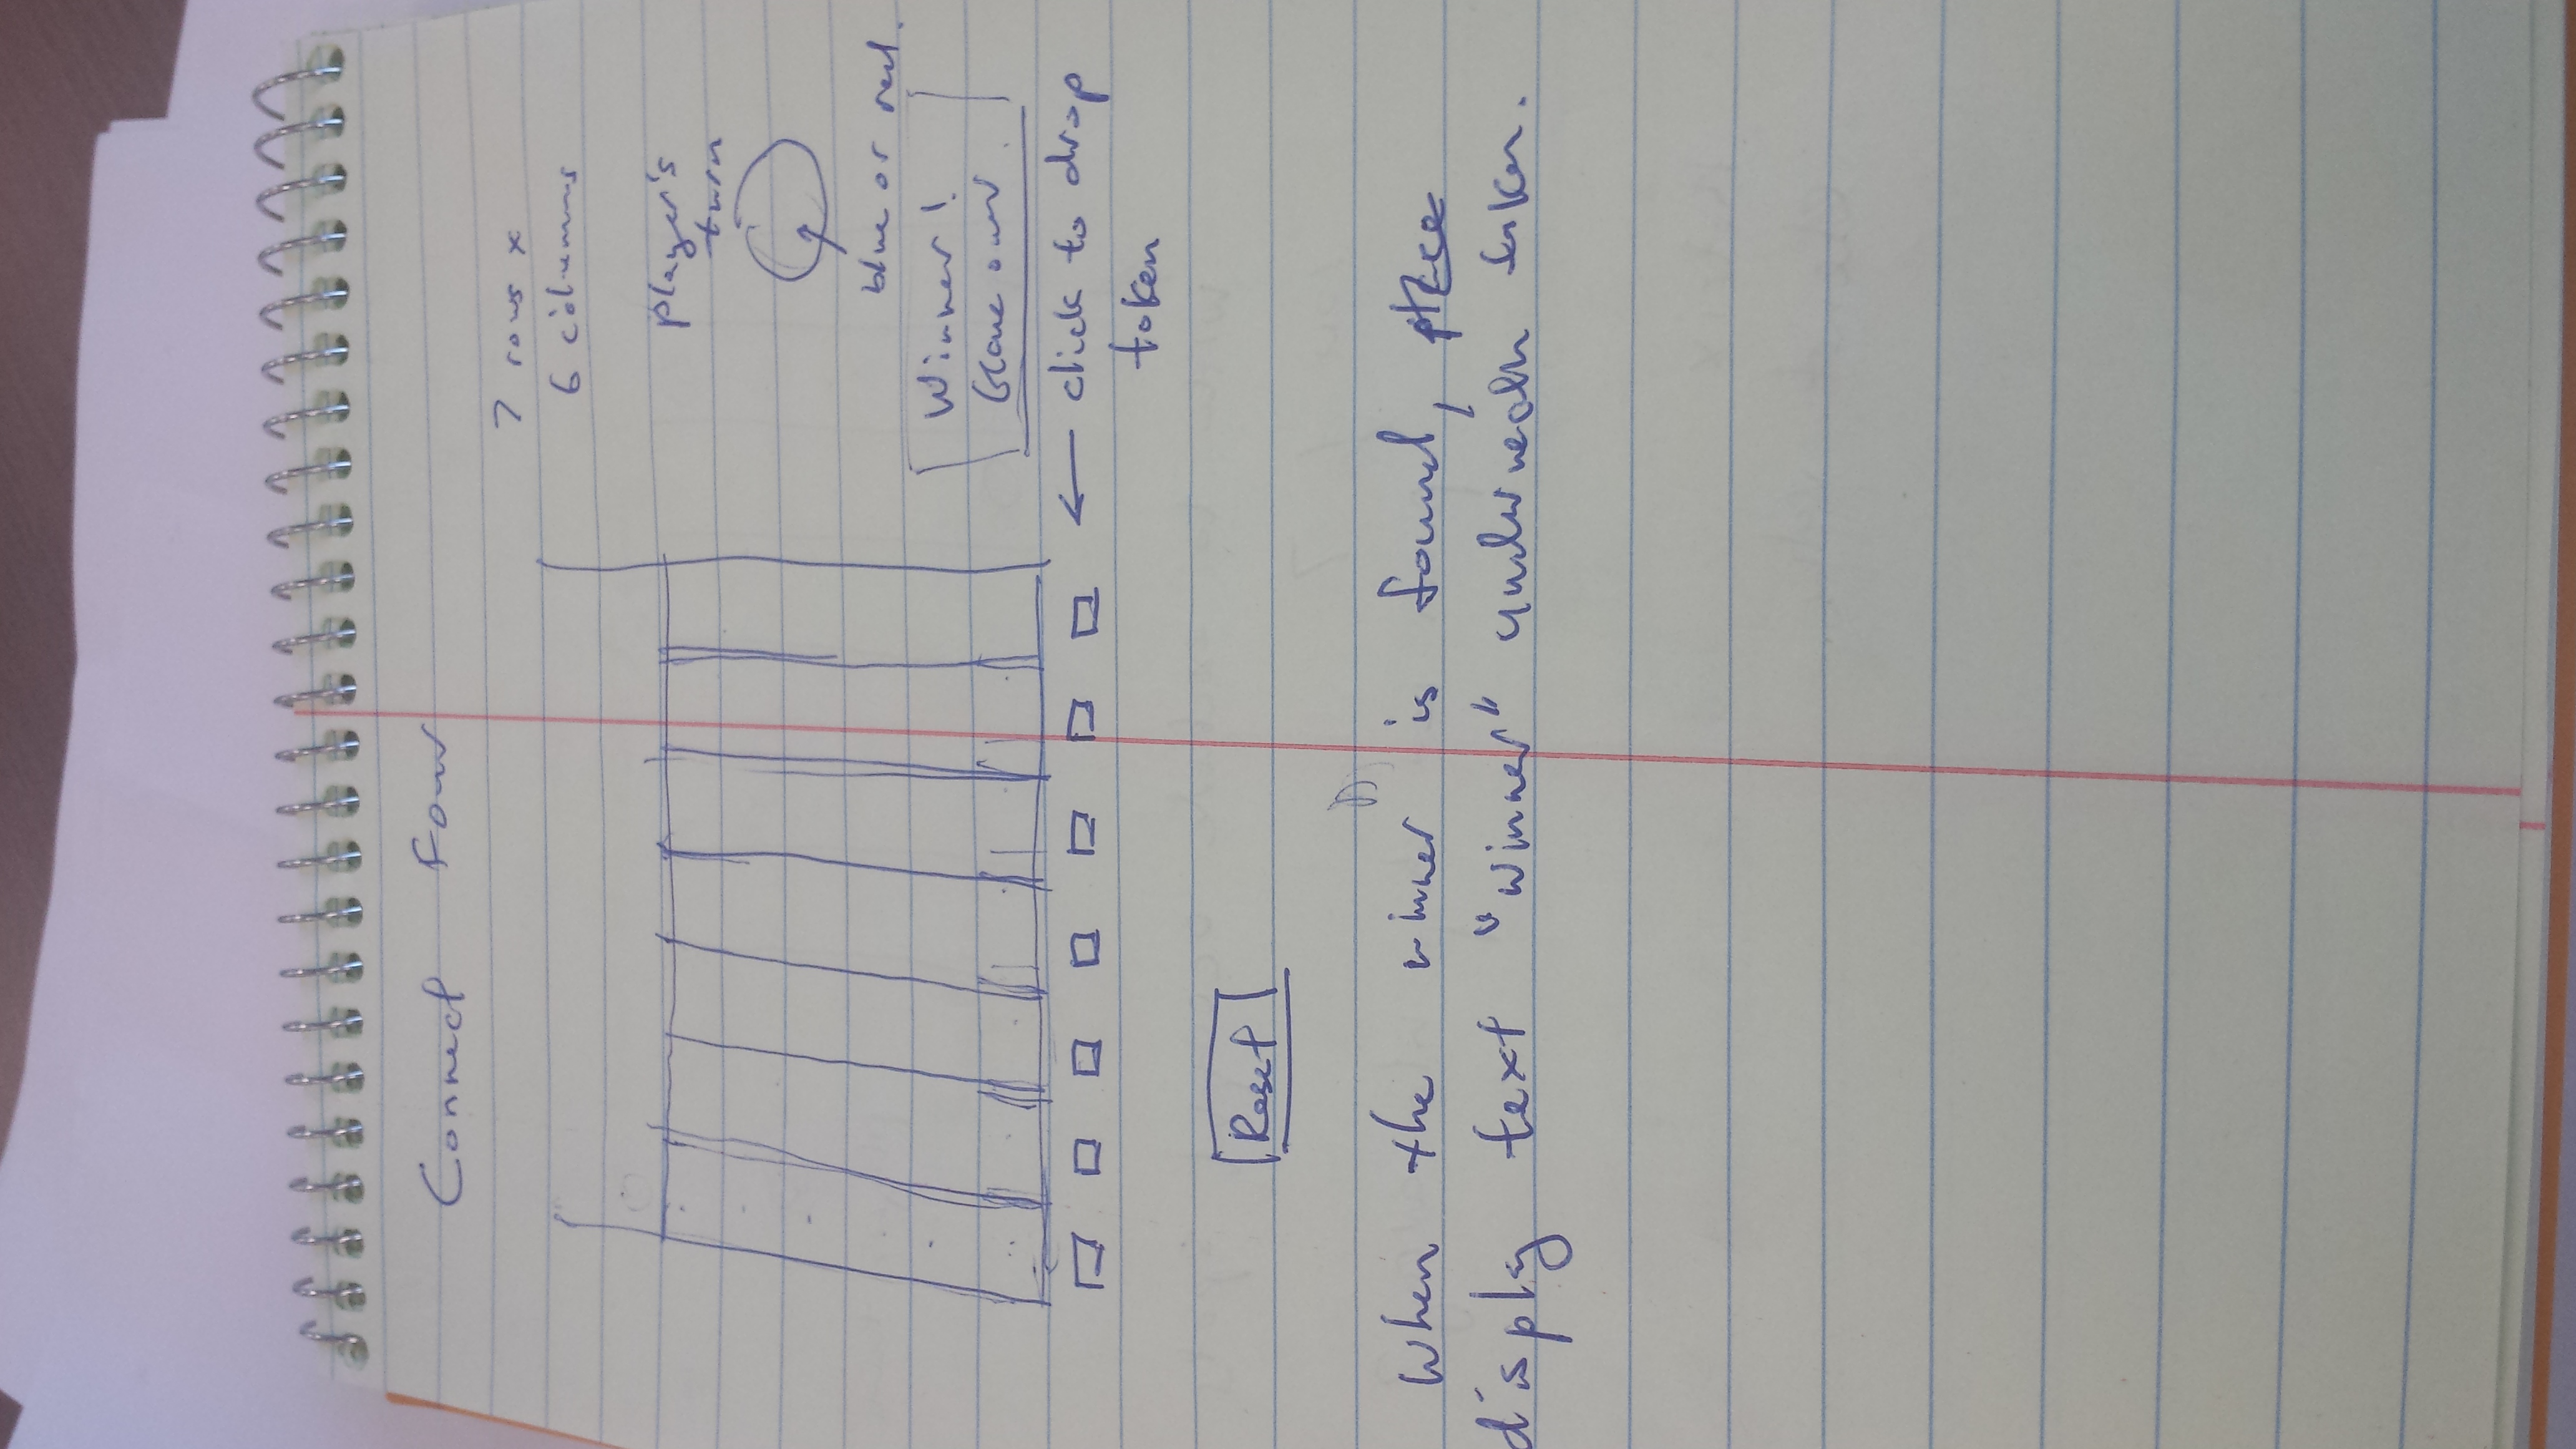 Connect Four
7 rows x
6 columns
player's
turn
blue or red.
Winner!
Game over
click to drop
token
Reset
When the winner is found, place
display text "winner" underneath token.